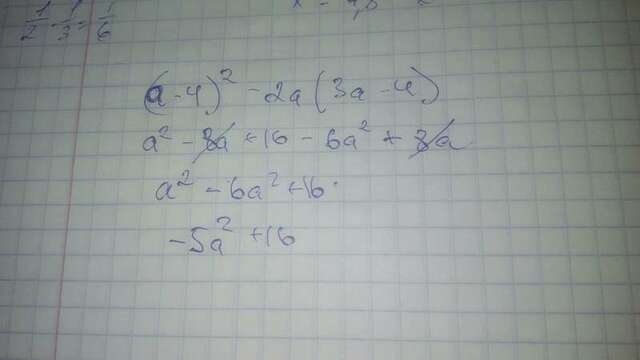 1/2 - 1/3 = 1/6
(a - 4)² - 2a (3a - 4)
a² - 8a + 16 - 6a² + 8a
a² - 6a² + 16
- 5a² + 16